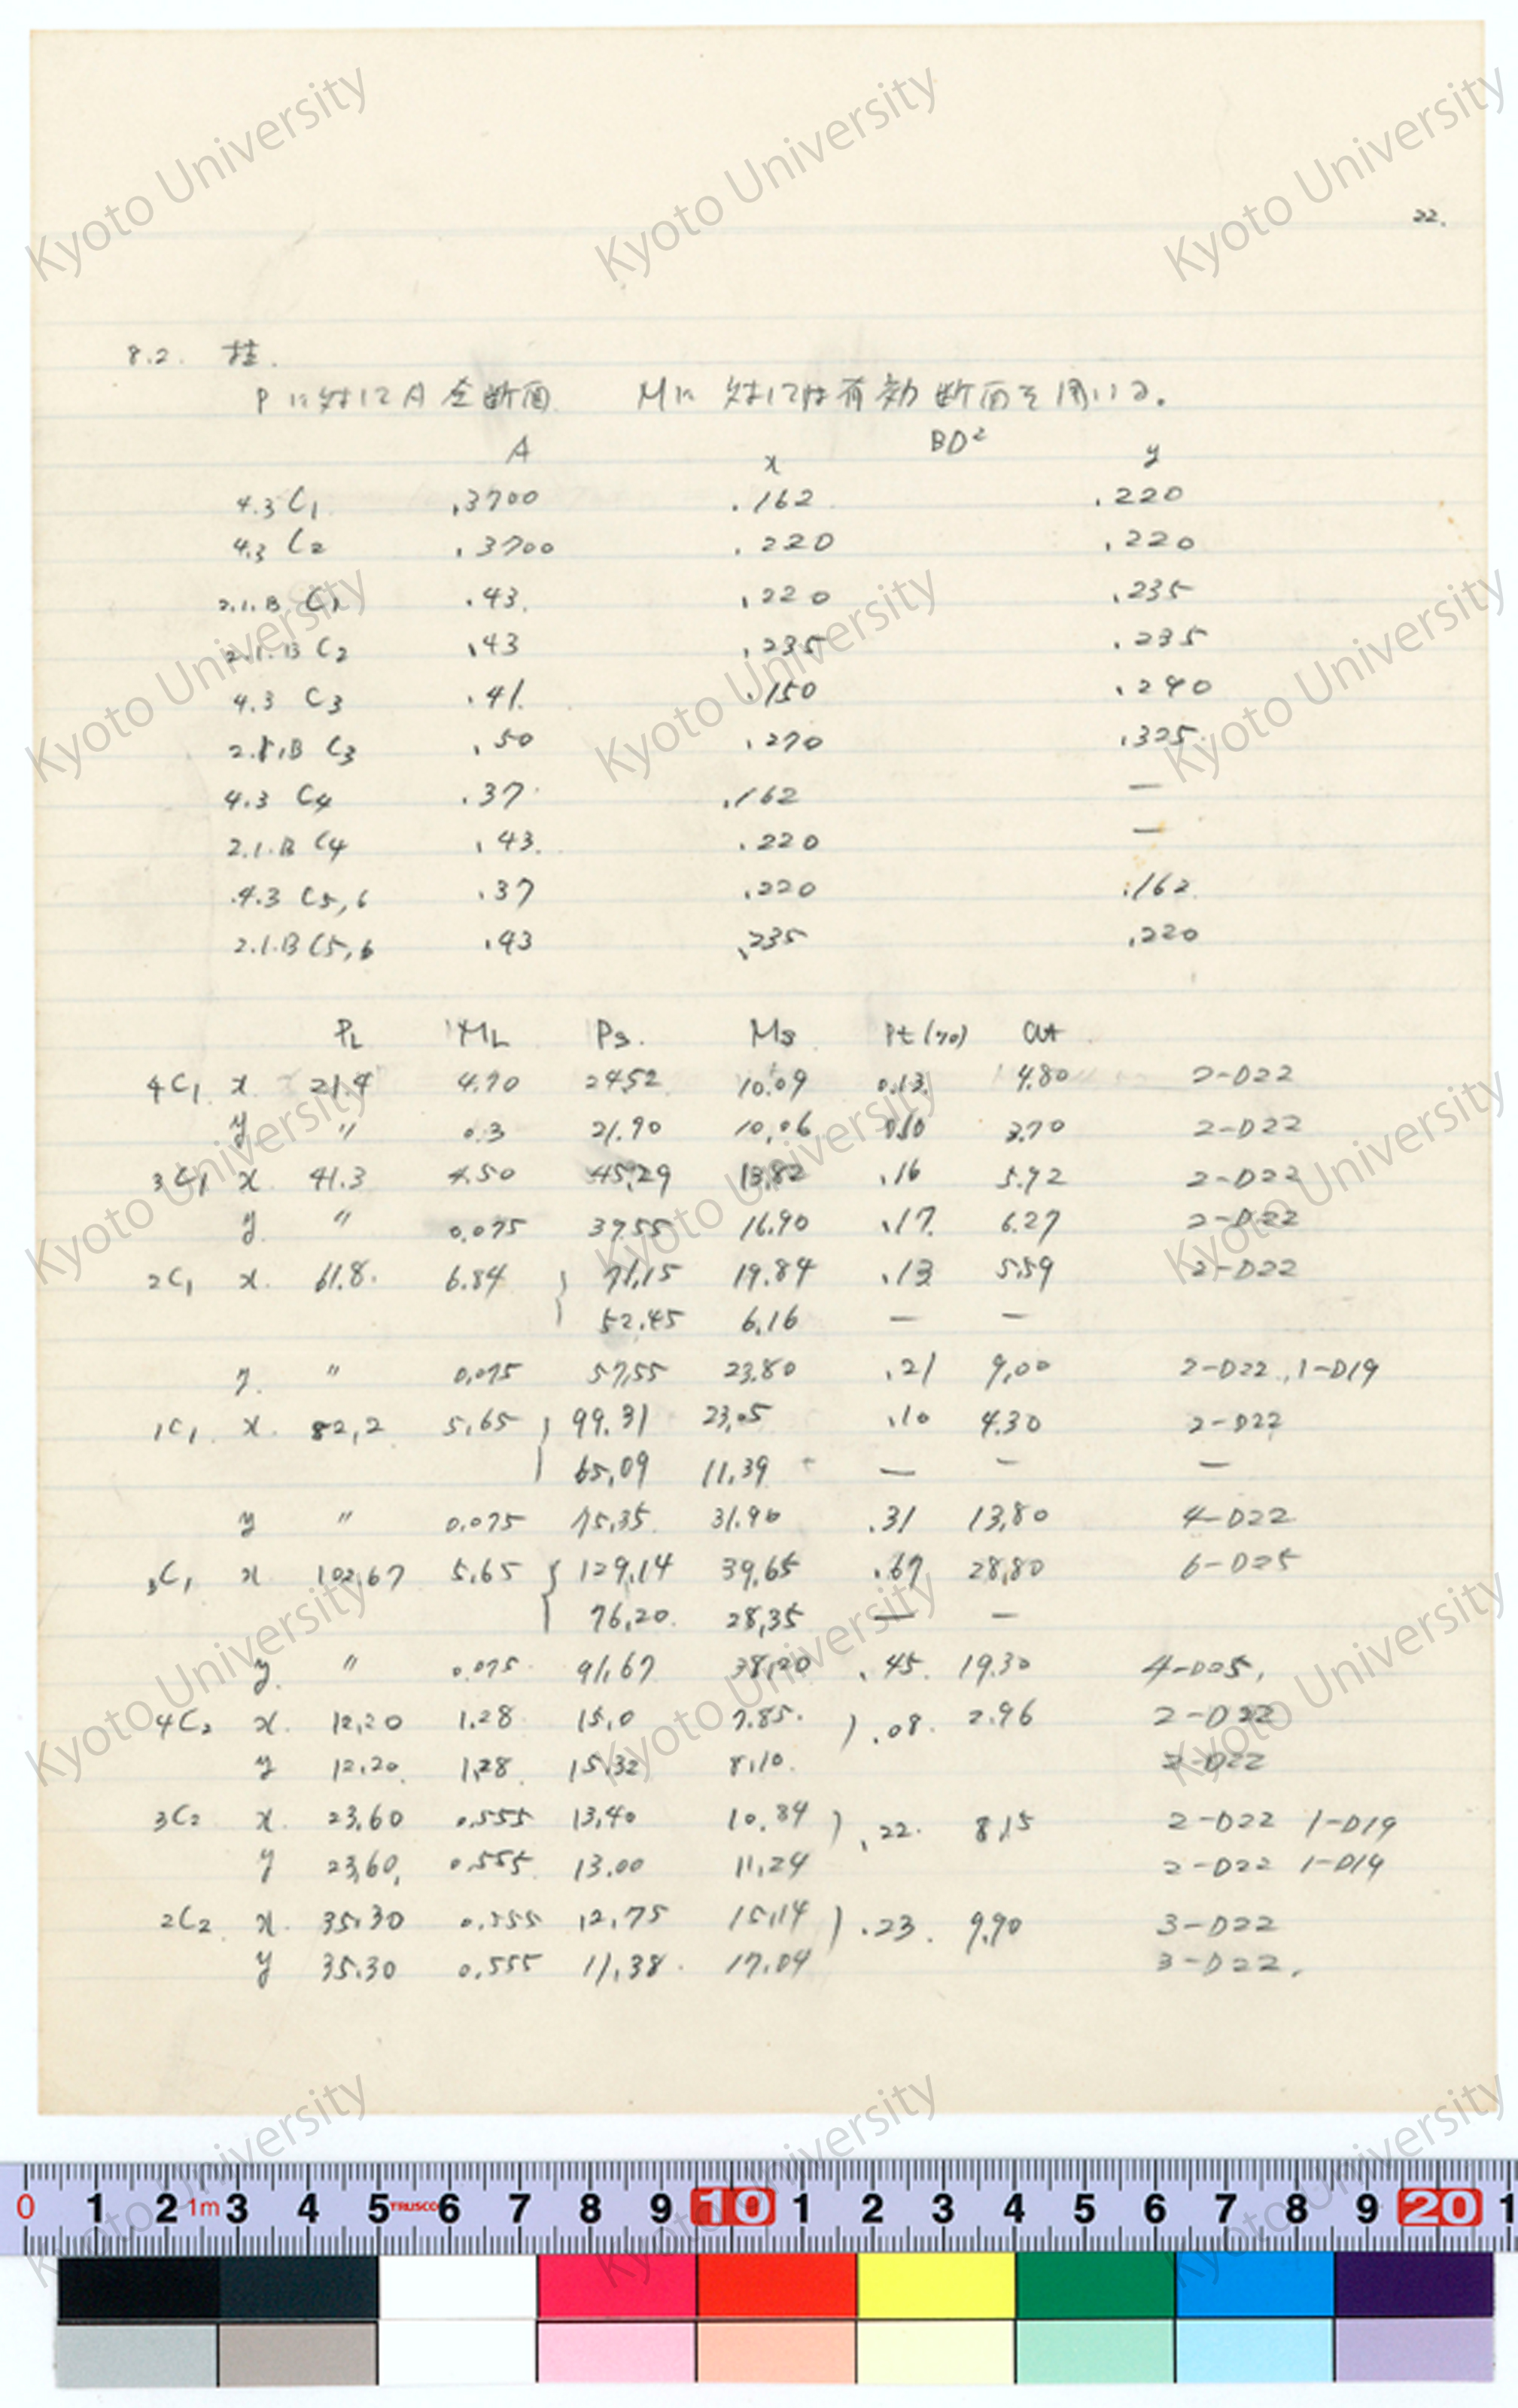 22.
8.2. 柱.
Pに対してA全断面 Mに対しては有効断面を用いる.
A BD²
x y
4.3 C1 .3700 .162 .220
4.3 C2 .3700 .220 .220
2.1.B C1 .43. .220 .235
2.1.B C2 .43 .235 .235
4.3 C3 .41. .150 .290
2.1.B C3 .50 .270 .325
4.3 C4 .37 .162 —
2.1.B C4 .43. .220 —
4.3 C5,6 .37 .220 .162
2.1.B C5,6 .43 .235 .220
PL ML Ps. Ms Pt(%) at
4C1 x 21.4 4.70 24.52 10.09 0.13 4.80 2-D22
y 〃 0.3 21.90 10.06 0.10 3.70 2-D22
3C1 x 41.3 4.50 45.29 13.82 .16 5.92 2-D22
y. 〃 0.075 37.55 16.90 .17 6.27 2-D22
2C1 x. 61.8. 6.84 } 71.15 19.84 .13 5.59 2-D22
52.45 6.16 — —
y. 〃 0.075 57.55 23.80 .21 9.00 2-D22, 1-D19
1C1. x. 82.2 5.65 } 99.31 23.05 .10 4.30 2-D22
65.09 11.39 — — —
y 〃 0.075 75.35 31.90 .31 13.80 4-D22
C1 x 102.67 5.65 { 129.14 39.65 .67 28.80 6-D25
76.20. 28.35 — —
y. 〃 0.075 91.67 38.20 .45. 19.30 4-D25,
4C2 x. 12.20 1.28 15.0 7.85. ) .08. 2.96 2-D22
y 12.20 1.28 15.32 8.10. 2-D22
3C2 x. 23.60 0.555 13.40 10.84 ) .22. 8.15 2-D22 1-D19
y 23.60, 0.555 13.00 11.24 2-D22 1-D19
2C2 x. 35.30 0.555 12.75 15.14 ) .23. 9.90 3-D22
y 35.30 0.555 11.38. 17.04 3-D22.
Kyoto University
0 1 2 1m 3 4 5 TRUSCO 6 7 8 9 10 1 2 3 4 5 6 7 8 9 20 1